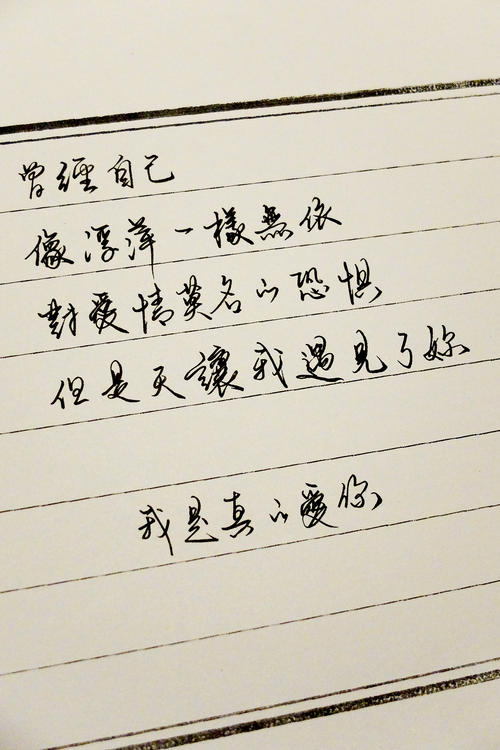 曾經自己
像浮萍一樣無依
對愛情莫名的恐懼
但是天讓我遇見了妳
我是真的愛你